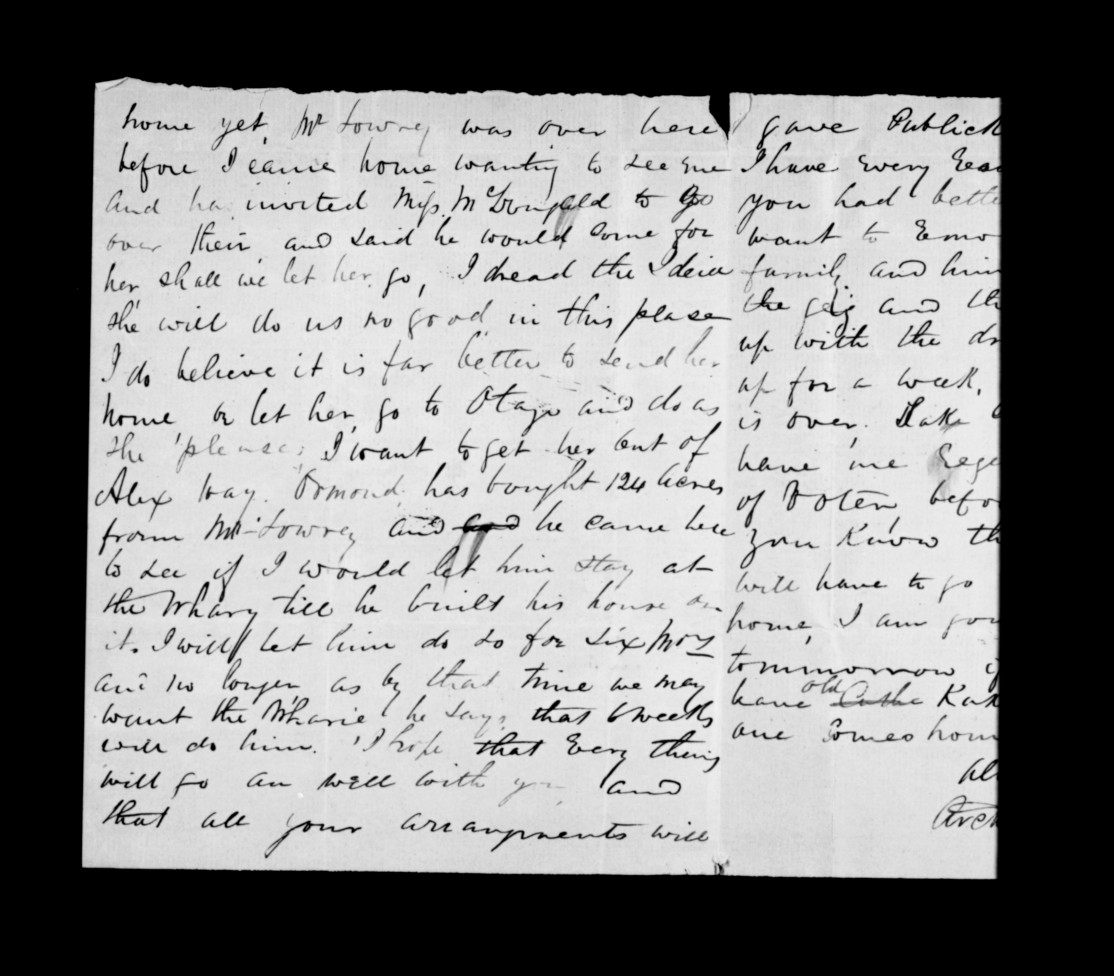 home yet, Mr Lowrey was over here
before I came home wanting to see me
and has invited Miss McDougald to go
over their, and said he would come for
her shall we let her go, I dread the Ideia
she will do us no good in this plase
I do believe it is far better to send her
home, or let her go to Otago and do as
she please; I want to get her out of
Alex way. Ormond has bought 124 acres
from Mr Lowrey and and he came here
to see if I would let him stay at
the Whary till he built his house on
it. I will let him do so for six Mos
and no longer, as by that time we may
want the Wharie, he says that 6 weeks
will do him. I hope that Every thing
will go on well with you and
that all your arrangments will
gave Publick
I have Every
you had bette
want to
family, and him
the gig and th
up with the
up for a week,
is over.
have me
of Voten, befor
you Know th
will have to go
home, I am
tommorrow
have old
one Comes hom
Arch